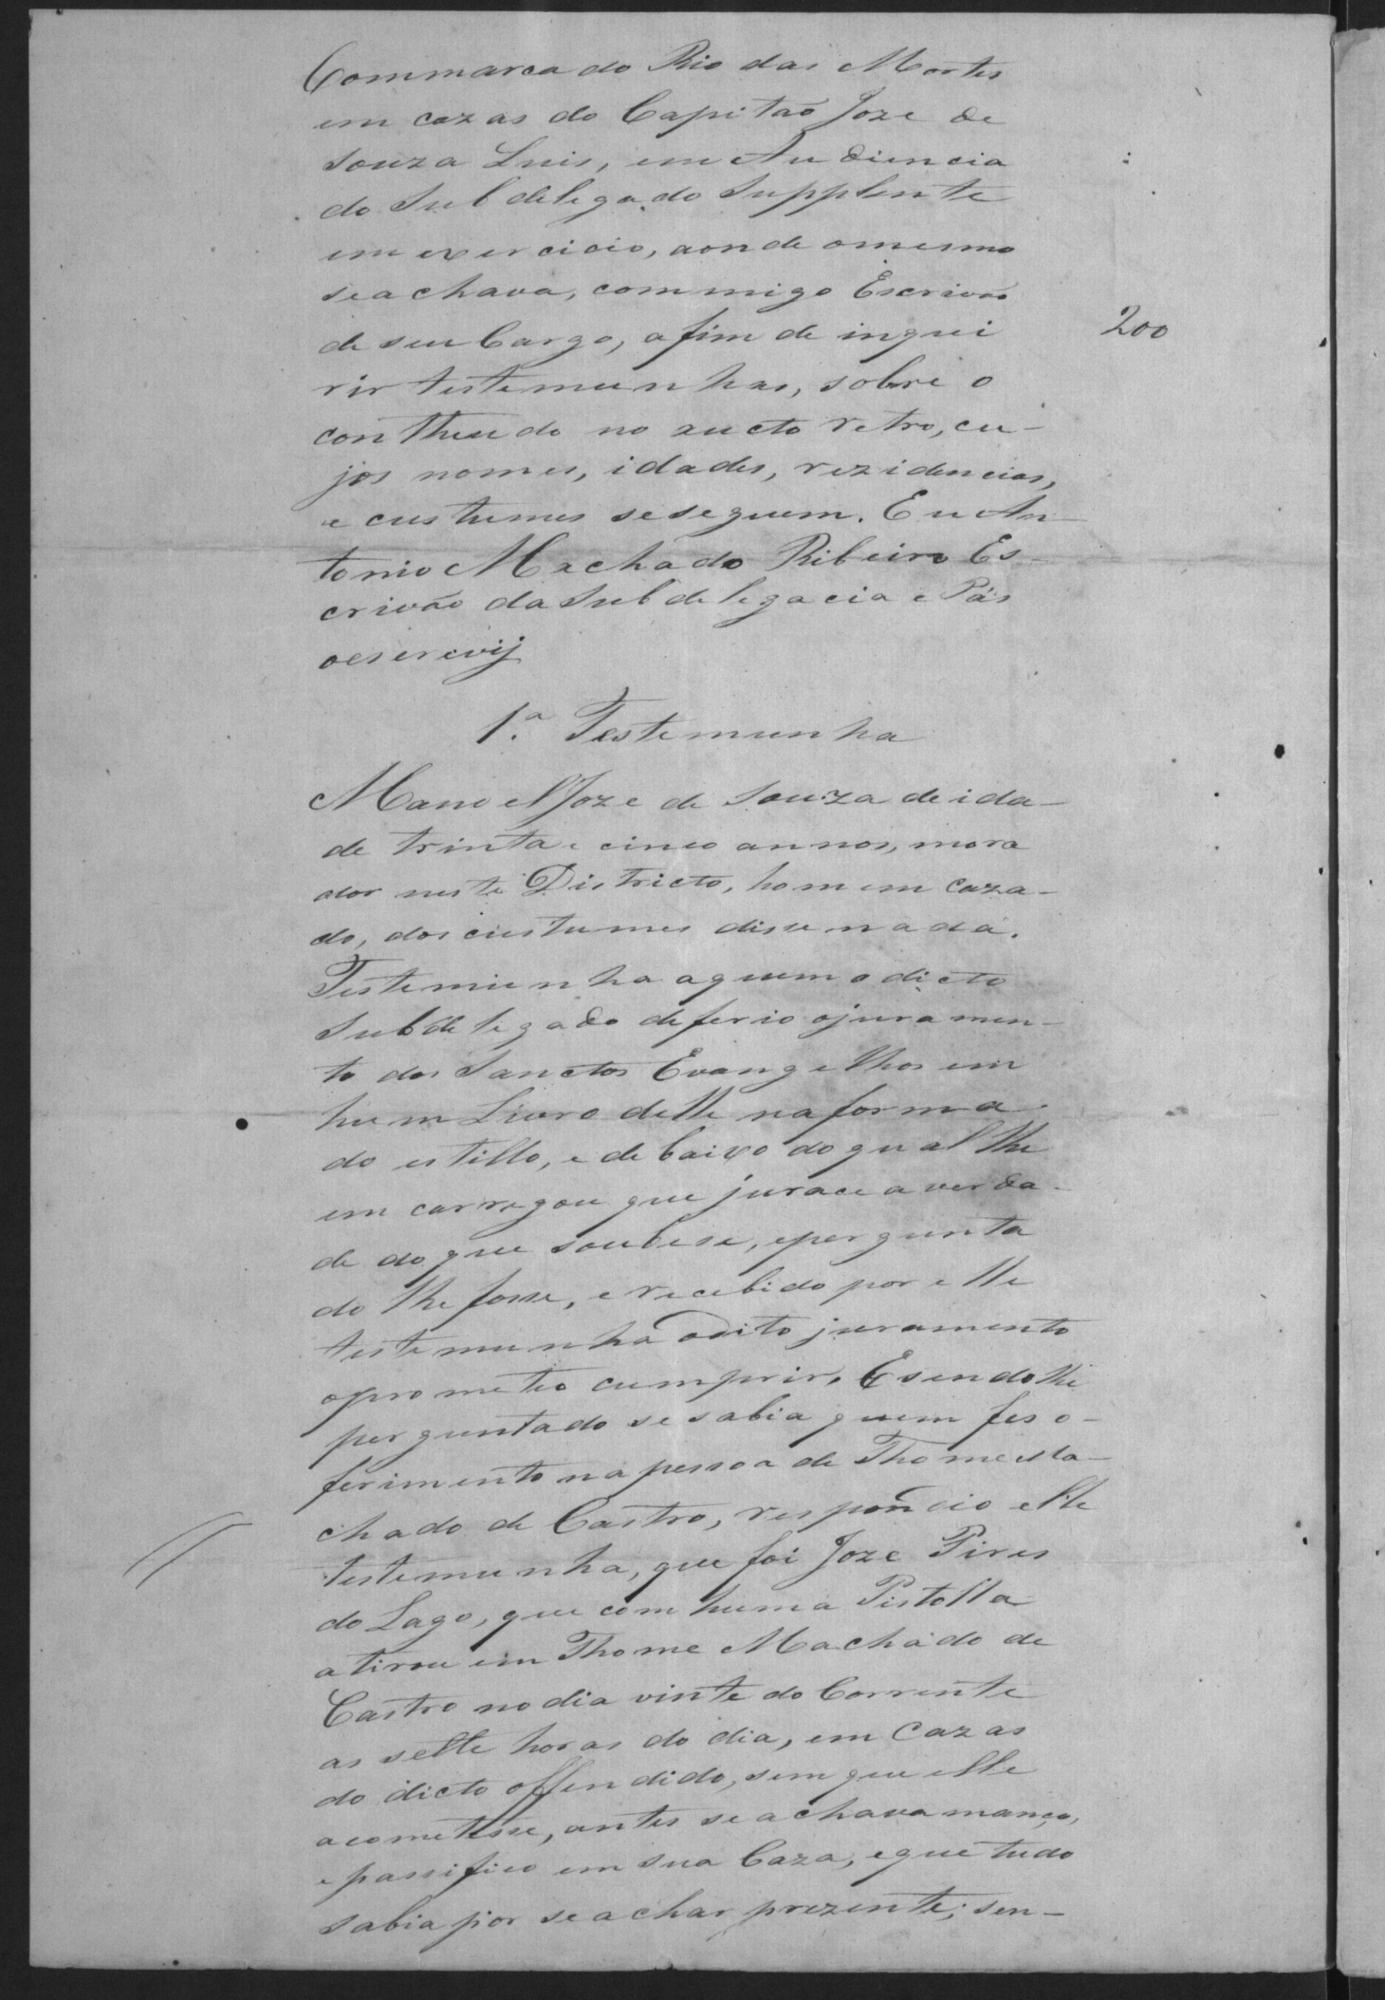 Commarca do Rio das Mortes
em cazas do Capitaõ Joze de
Souza Luis, em Audiencia
do Subdelegado Supplente
em exercicio, aonde omesmo
se achava, commigo Escrivaõ
de seu Cargo, afim de inquei
rir testemunhas, sobre o
contheudo no aucto retro, cu-
jos nomes, idades, rezidencias,
e custumes seseguem. Eu An-
tonio Machado Ribeiro Es-
crivão da Subdelegacia e Pás
oescrevij
200
1.ª Testemunha
Manoel Joze de Souza de ida-
de trinta e cinco annos, mora
dor neste Districto, homem caza-
do, dos custumes disse nada.
Testemunha aquem o dicto
Subdelegado deferio ojuramen-
to dos Sanctos Evangelhos em
hum Livro delle na forma
do estillo, e debaixo do qual lhe
emcarregou que jurace a verda-
de do que soubese, eper gunta
do lhe fosse, e recebido por elle
testemunha odito juramento
oprometeo cumprir. Esendolhe
perguntado se sabia quem fes o-
ferimento na pessoa de Thome Ma-
chado de Castro, respondio elle
testemunha, que foi Joze Pires
do Lago, que com huma Pistolla
atirou em Thome Machado de
Castro no dia vinte do Corrente
as sette horas do dia, em Cazas
do dicto offendido, sem que elle
acometesse, antes se achava manço,
e passifico em sua Caza, eque tudo
sabia por se achar prezente; sen-